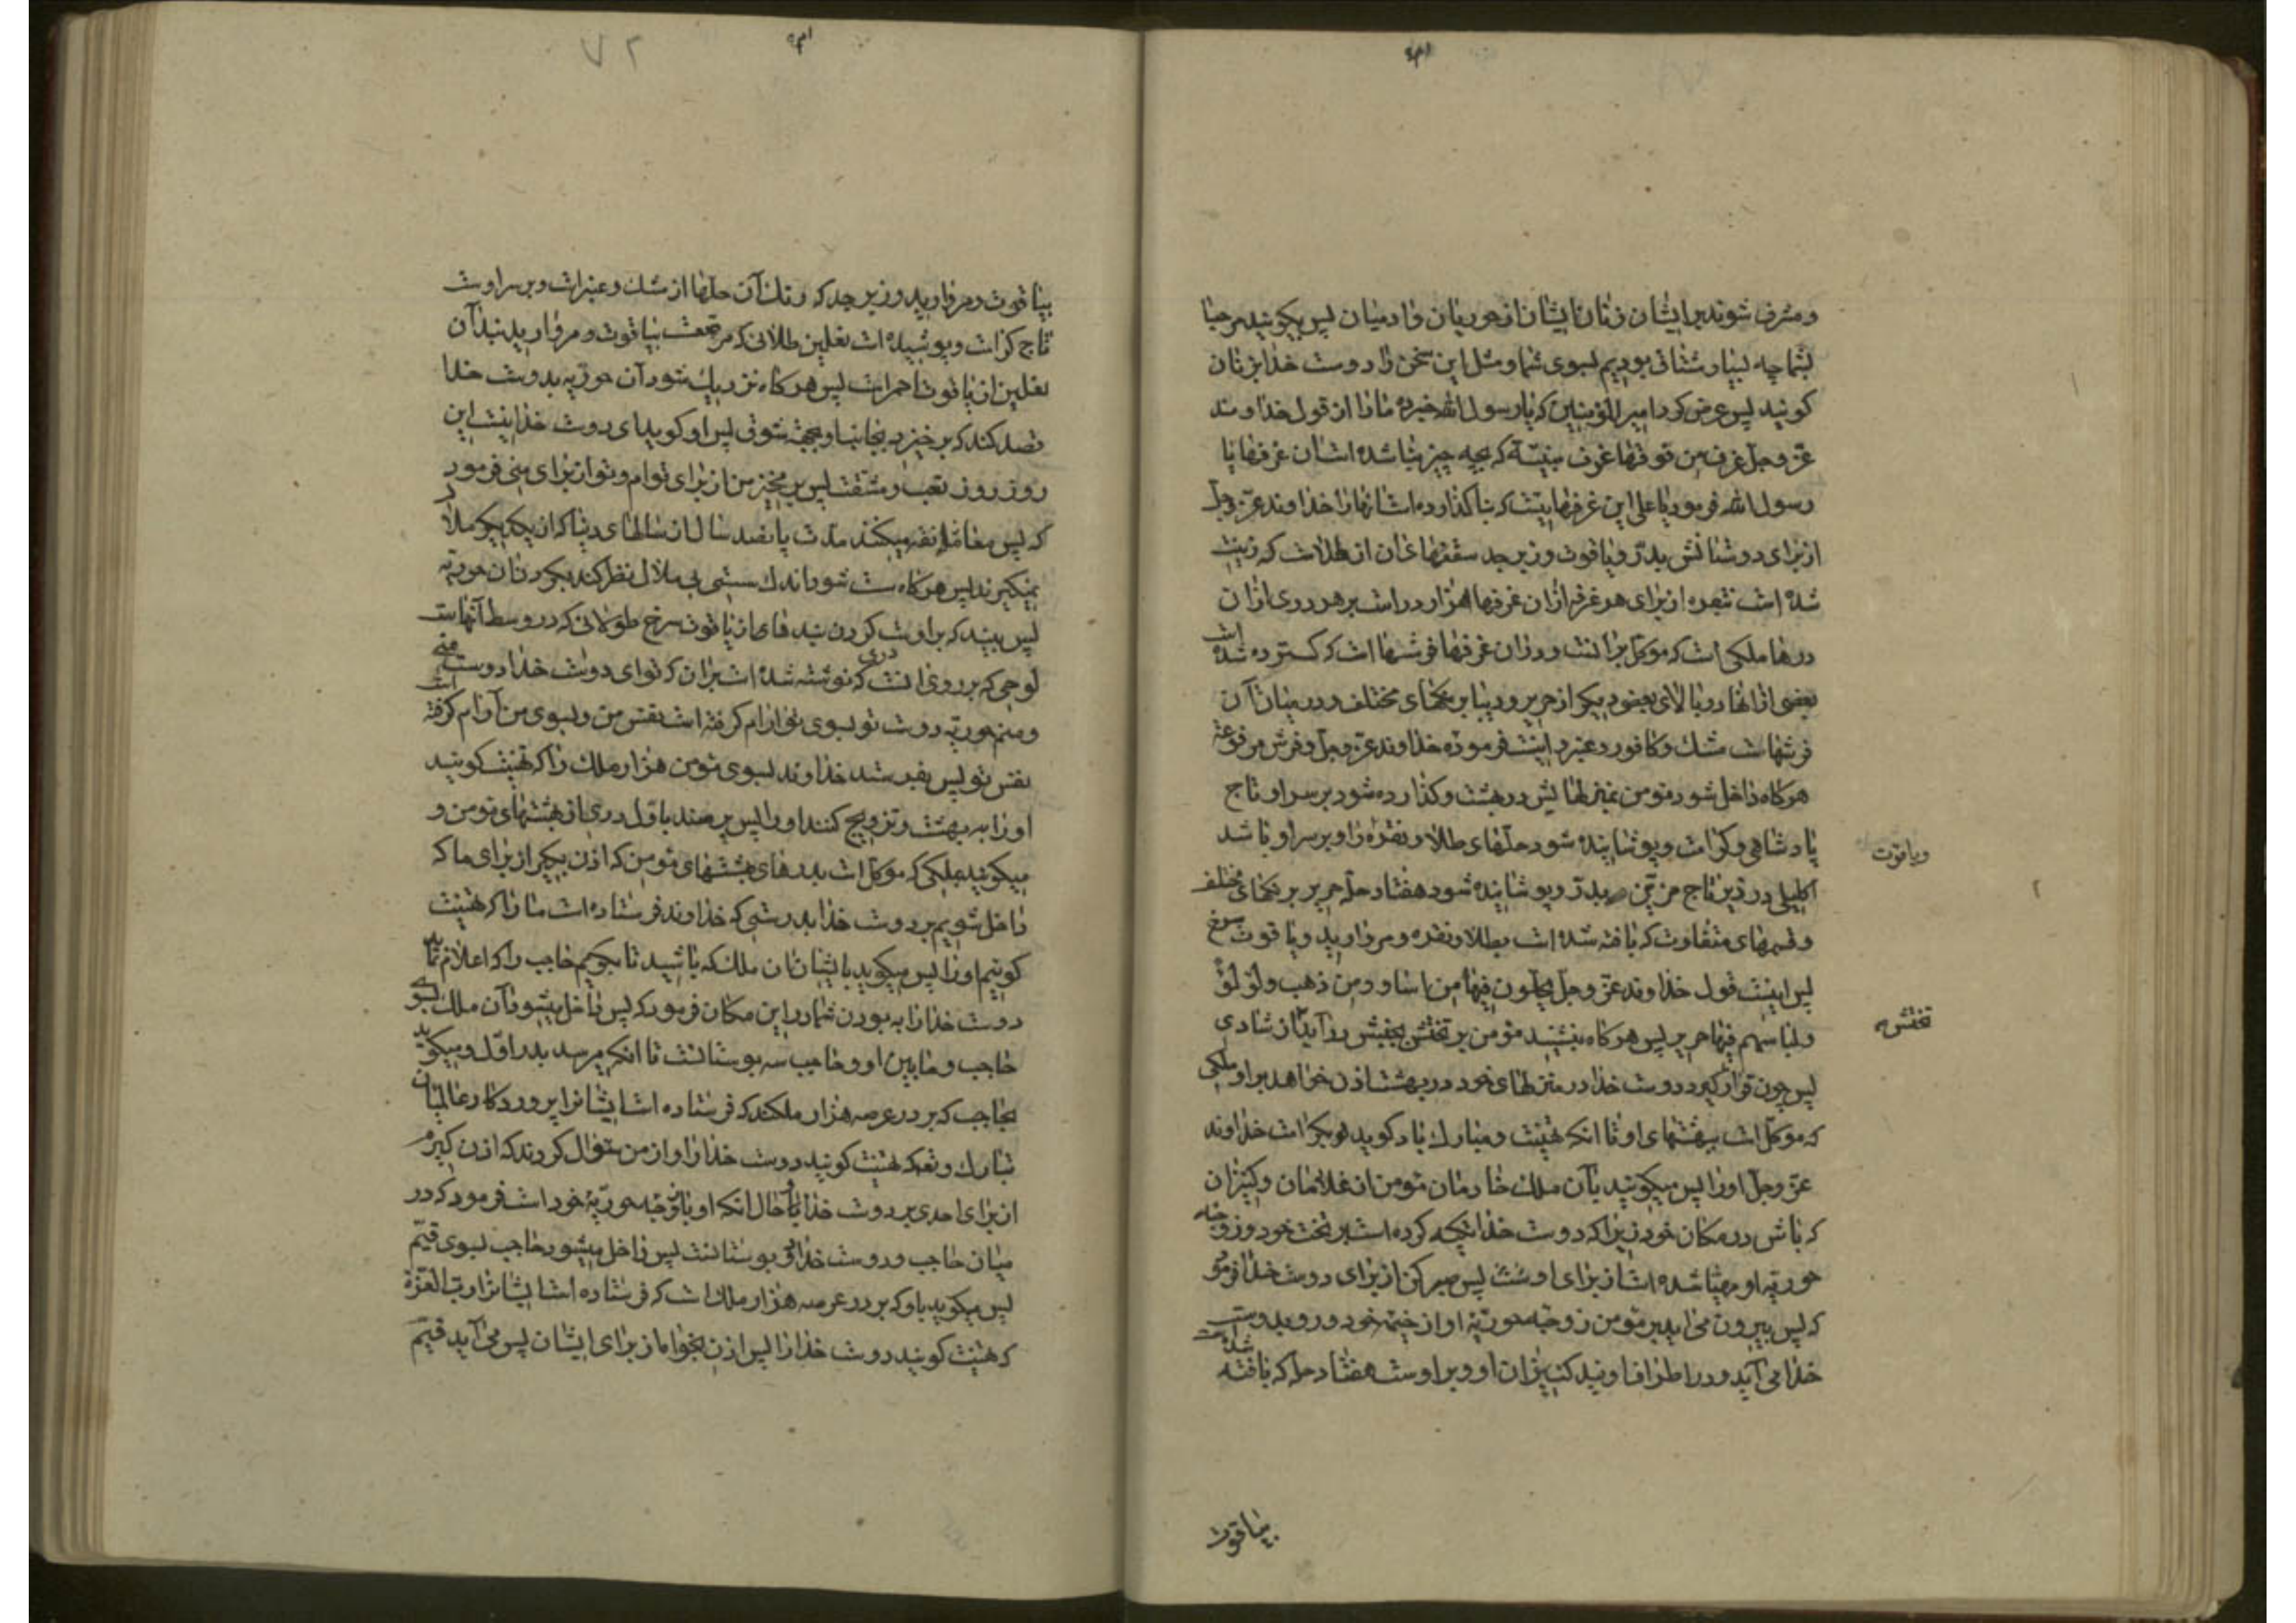 و مشرف شوند بر ایشان زنان ایشان از حوریان و ادمیان پس بگویند مرحبا
بشما چه بسیار مشتاق بودیم بسوی شما و مثل این سخن را دوست خدا بزنان
کویند پس عرض کرد امیر المؤمنین که یا رسول الله خبر ده ما را از قول خداوند
عز و جل غرف من فوقها غرف مبنیة که بچه چیز بنا شده است ان غرفها یا
رسول الله فرمود یا علی این غرفهاییست که بنا کذارده است انها را خداوند عز و جل
از برای دوستانش بدر و یاقوت و زبرجد سقفهاشان از طلاست که زینت
شده است بنقره از برای هر غرفه ازان غرفها هزار در است بر هر دری ازان
درها ملکی است که موکل بر انست و دران غرفها فرشها است که کسترده شده است
بعضی از انها در بالای بعضی دیکر از حریر و دیبا برنکهای مختلف و در میان آن
فرشهاست مشک و کافور و عنبر و اینست فرموده خداوند عز و جل و فرش مرفوعة
هرکاه داخل شود مؤمن بمنزلهایش در بهشت و کذارده شود بر سر او تاج
پادشاهی و کرامت و پوشانیده شود حلهای طلا و نقره را و بر سر او باشد
و یاقوت
اکلیلی در زیر تاج مزین بدر و پوشانیده شود هفتاد حله حریر برنکهای مختلف
و قسمهای متفاوت که بافته شده است بطلا و نقره و مروارید و یاقوت سرخ
پس اینست قول خداوند عز و جل یحلون فیها من اساور من ذهب و لؤلؤ
و لباسهم فیها حریر پس هرکاه بنشیند مؤمن بر تختش بجنبش در آید از شادی
تختش
پس چون قرار کیرد دوست خدا در منزلهای خود در بهشت اذن خواهد بر او ملکی
که موکل است ببهشتهای او تا انکه تهنیت و مبارک باد کوید او بکرامت خداوند
عز و جل او را پس میکویند بآن ملک خادمان مؤمن از غلامان و کنیزان
که باش در مکان خود زیرا که دوست خدا تکیه کرده است بر تخت خود و زوجه
حوریه او مهیا شده است از برای او پس صبر کن از برای دوست خدا فرمود
که پس بیرون می اید بر مؤمن زوجه حوریه او از خیمه خود و رو بدوست
خدا می آید و در اطراف اویند کنیزان او و بر اوست هفتاد حله که بافته شده است
بیاقوت
بیاقوت و مروارید و زبرجد که رنک آن حلها از مشک و عنبر است و بر سر اوست
تاج کرامت و پوشیده است نعلین طلائی که مرصعست بیاقوت و مروارید بند آن
نعلین از یاقوت احمر است پس هرکاه نزدیک شود آن حوریه بدوست خدا
قصد کند که بر خیزد بجانب او بجهة شوق پس او کوید ای دوست خدا نیست این
روز روز تعب و مشقت پس بر مخیز من از برای توام و تو از برای منی فرمود
که پس معانقه میکنند مدت پانصد سال از سالهای دنیا که از یکدیکر ملال
نمیکیرند پس هرکاه سست شود اندک سستی بی ملال نظر کند بکردن ان حوریه
پس بیند که بر اوست کردن بندهای از یاقوت سرخ طولانی که در وسط آنهاست
لوحی که بر روی انست دری که نوشته شده است بران که تو ای دوست خدا دوست منی
و منم حوریه دوست تو بسوی تو ارام کرفته است نفس من و بسوی من آرام کرفته است
نفس تو پس بفرستد خداوند بسوی مؤمن هزار ملک را که تهنیت کویند
او را به بهشت و تزویج کنند او را پس برسند باول دری از بهشتهای مؤمن و
میکویند بملکی که موکل است بدرهای بهشتهای مؤمن که اذن بکیر از برای ما که
داخل شویم بر دوست خدا بدرستی که خداوند فرستاده است ما را که تهنیت
کوییم او را پس میکوید بایشان ان ملک که باشید تا بکویم حاجب را که اعلام نماید
دوست خدا را به بودن شما در این مکان فرمود که پس داخل میشود آن ملک بسوی
حاجب و مابین او و حاجب سه بوستانست تا انکه میرسد بدر اول و میکوید
بحاجب که بر در عرصه هزار ملکند که فرستاده است ایشانرا پروردکار عالمیان
تبارک و تعالی که تهنیت کویند دوست خدا را و از من سؤال کردند که اذن کیرم
از برای احدی بر دوست خدا و حال انکه او با زوجه حوریه خود است فرمود که در
میان حاجب و دوست خدا دو بوستانست پس داخل میشود حاجب بسوی قیم
پس میکوید باو که بر در عرصه هزار ملک است که فرستاده است ایشانرا رب العزة
که تهنیت کویند دوست خدا را پس اذن بخواه از برای ایشان پس می آید قیم